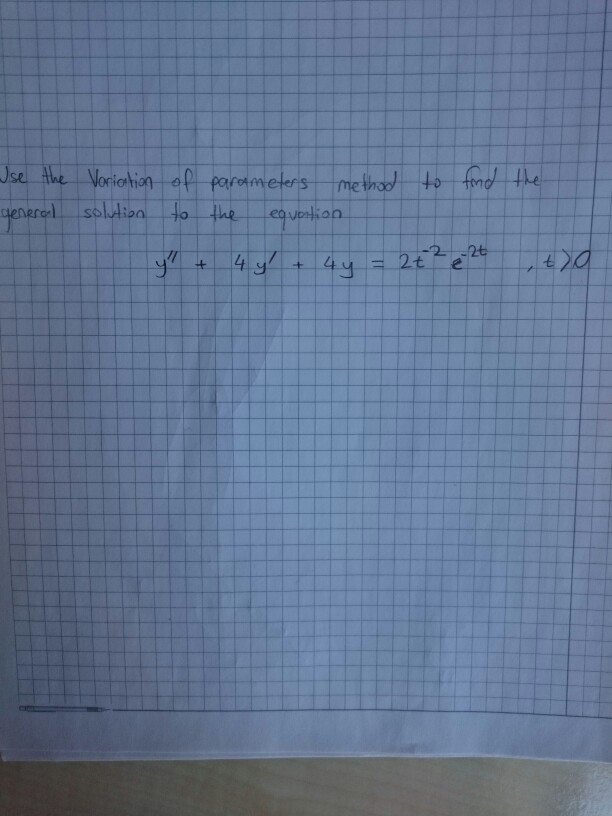 Use the Variation of parameters method to find the
general solution to the equation
y'' + 4y' + 4y = 2t⁻² e⁻²ᵗ , t>0